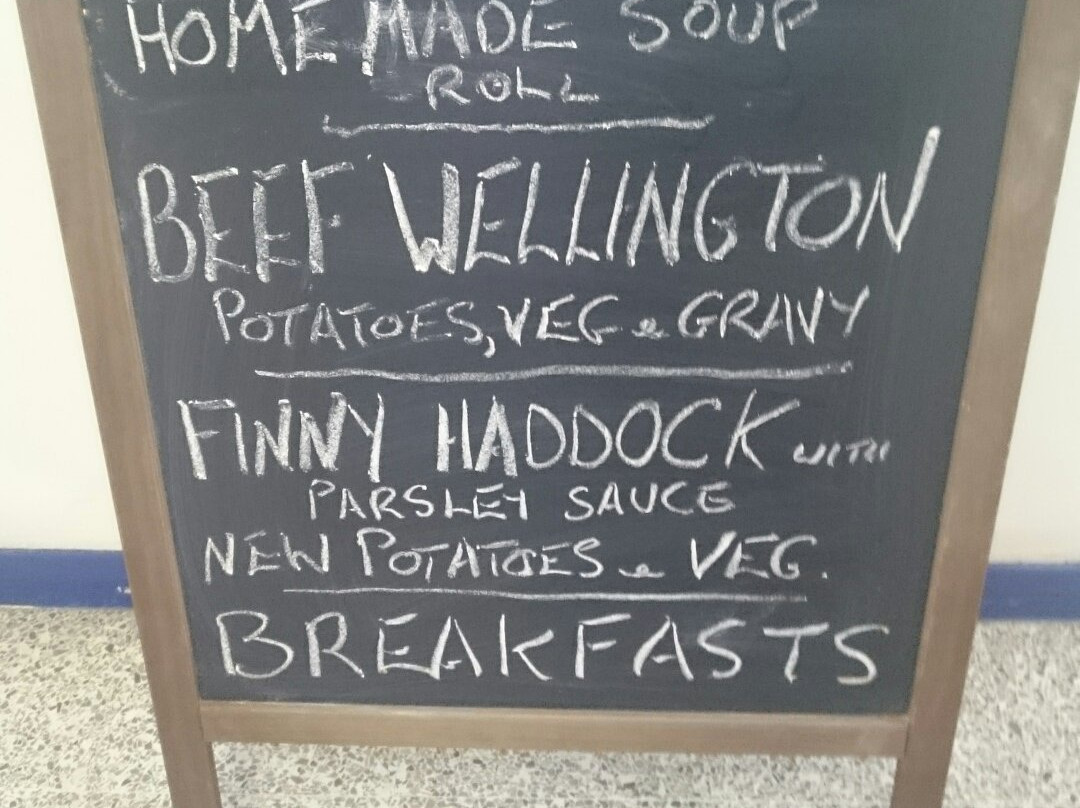 HOMEMADE SOUP
ROLL
BEEF WELLINGTON
POTATOES, VEG & GRAVY
FINNY HADDOCK WITH
PARSLEY SAUCE
NEW POTATOES & VEG.
BREAKFASTS